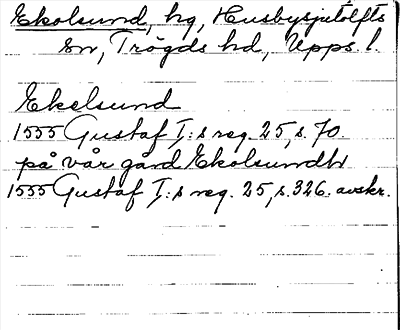 Ekolsund, hg, Husbysjutolfts
sn, Trögds hd, Upps. l.
Ekelsund
1555 Gustaf I:s reg. 25, s. 70.
på vår gård Ekolsundh
1555 Gustaf I:s reg. 25, s. 326. avskr.